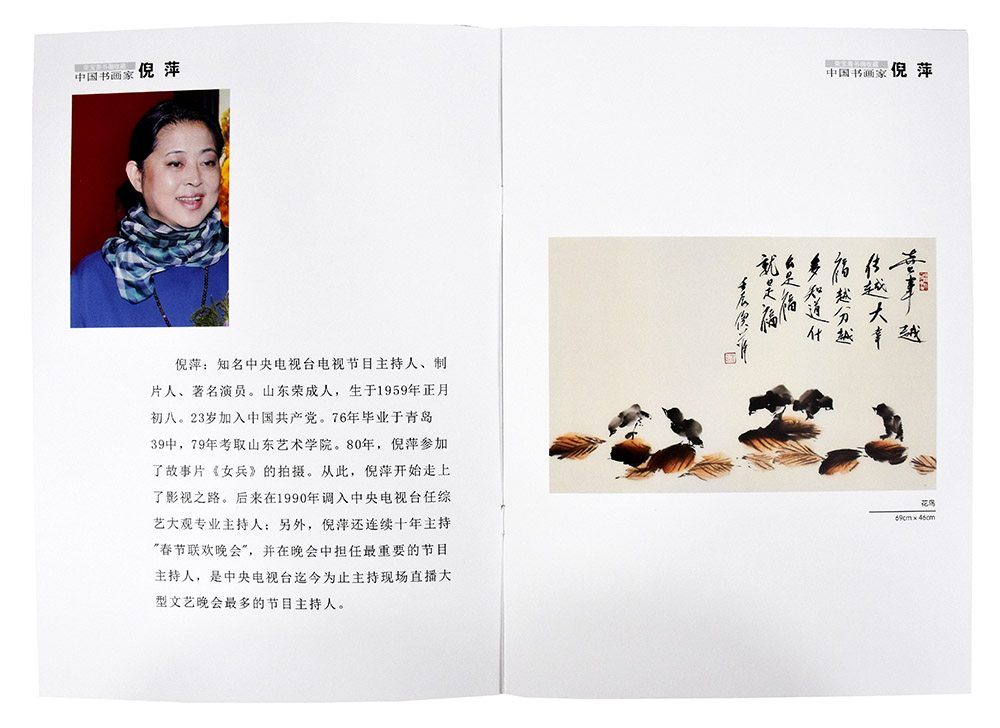 中国书画家 倪 萍
倪萍：知名中央电视台电视节目主持人、制
片人、著名演员。山东荣成人，生于1959年正月
初八。23岁加入中国共产党。76年毕业于青岛
39中，79年考取山东艺术学院。80年，倪萍参加
了故事片《女兵》的拍摄。从此，倪萍开始走上
了影视之路。后来在1990年调入中央电视台任综
艺大观专业主持人；另外，倪萍还连续十年主持
"春节联欢晚会"，并在晚会中担任最重要的节目
主持人，是中央电视台迄今为止主持现场直播大
型文艺晚会最多的节目主持人。
中国书画家 倪 萍
喜事越
传越大幸
福越分越
多知道什
么是福
就是福
壬辰倪萍
花鸟
69cm x 46cm